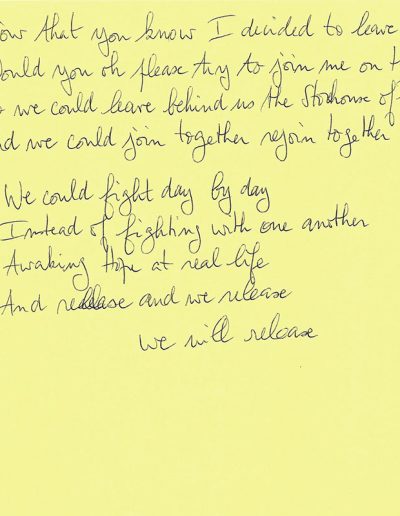 ow that you know I decided to leave
ould you oh please try to join me on t
o we could leave behind us the Storhouse of
nd we could join together rejoin together
We could fight day by day
Instead of fighting with one another
Awaking Hope at real life
And rellease and we release
we will release